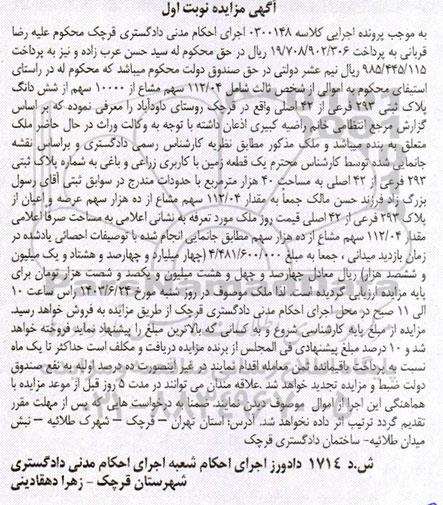 آگهی مزایده نوبت اول
به موجب پرونده اجرایی کلاسه ۰۳۰۰۱۴۸ اجرای احکام مدنی دادگستری قرچک محکوم علیه رضا
قربانی به پرداخت ۱۹/۷۰۸/۹۰۲/۳۰۶ ریال در حق محکوم له سید حسن عرب زاده و نیز به پرداخت
۹۸۵/۴۴۵/۱۱۵ ریال نیم عشر دولتی در حق صندوق دولت محکوم میباشد که محکوم له در راستای
استیفای محکوم به اموالی از شخص ثالث شامل ۱۱۲/۰۴ سهم مشاع از ۱۰۰۰۰ سهم از شش دانگ
پلاک ثبتی ۲۹۳ فرعی از ۴۲ اصلی واقع در قرچک روستای داودآباد را معرفی نموده که بر اساس
گزارش مرجع انتظامی خانم راضیه کبیری اذعان داشته با توجه به وکالت وراث در حال حاضر ملک
متعلق به بنده میباشد و ملک مذکور مطابق نظریه کارشناس رسمی دادگستری و براساس نقشه
جانمایی شده توسط کارشناس محترم یک قطعه زمین با کاربری زراعی و باغی به شماره پلاک ثبتی
۲۹۳ فرعی از ۴۲ اصلی به مساحت ۴۰ هزار مترمربع با حدودات مندرج در سوابق ثبتی آقای رسول
بزرگ زاد فرزند حسن مالک جمعاً به مقدار ۱۱۲/۰۴ سهم مشاع از ده هزار سهم عرصه و اعیان از
پلاک ۲۹۳ فرعی از ۴۲ اصلی قیمت روز ملک مورد تعرفه به نشانی اعلامی به مساحت صرفاً اعلامی
مقدار ۱۱۲/۰۴ سهم مشاع از ده هزار سهم مطابق جانمایی انجام شده با توصیفات احصائی یادشده در
زمان بازدید میدانی ، جمعاً به مبلغ ۴/۴۸۱/۶۰۰/۰۰۰ (چهار میلیارد و چهارصد و هشتاد و یک میلیون
و ششصد هزار) ریال معادل چهارصد و چهل و هشت میلیون و یکصد و شصت هزار تومان برای
پایه مزایده ارزیابی گردیده است. لذا ملک موصوف در روز شنبه مورخ ۱۴۰۳/۶/۲۴ راس ساعت ۱۰
الی ۱۱ صبح در محل اجرای احکام مدنی دادگستری قرچک از طریق مزایده به فروش خواهد رسید.
مزایده از مبلغ پایه کارشناسی شروع و به کسانی که بالاترین مبلغ را پیشنهاد نماید فروخته خواهد
شد و ۱۰ درصد مبلغ پیشنهادی فی المجلس از برنده مزایده دریافت و مکلف است حداکثر تا یک ماه
نسبت به پرداخت باقیمانده ثمن معامله اقدام نمایند در غیر اینصورت ده درصد اولیه به نفع صندوق
دولت ضبط و مزایده تجدید خواهد شد .علاقه مندان می توانند در مدت ۵ روز قبل از موعد مزایده با
هماهنگی این اجرا از اموال موصوف دیدن نمایند. ضمناً به درخواست هایی که پس از مهلت مقرر
تقدیم گردد ترتیب اثر داده نخواهد شد. آدرس: استان تهران – قرچک – شهرک طلائیه – نبش
میدان طلائیه- ساختمان دادگستری قرچک
ش.د ۱۷۱۴ دادورز اجرای احکام شعبه اجرای احکام مدنی دادگستری
شهرستان قرچک - زهرا دهقادینی